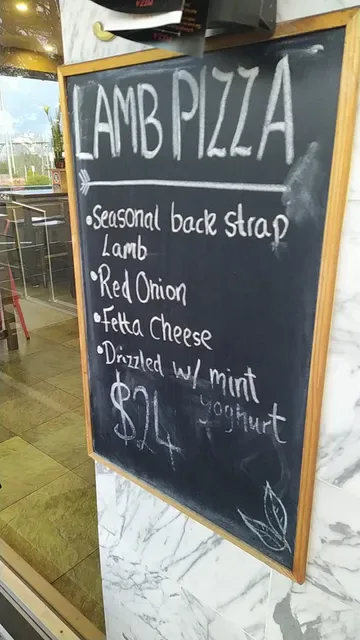 LAMB PIZZA
•Seasonal back strap
Lamb
•Red Onion
•Fetta Cheese
•Drizzled w/ mint
yoghurt
$24